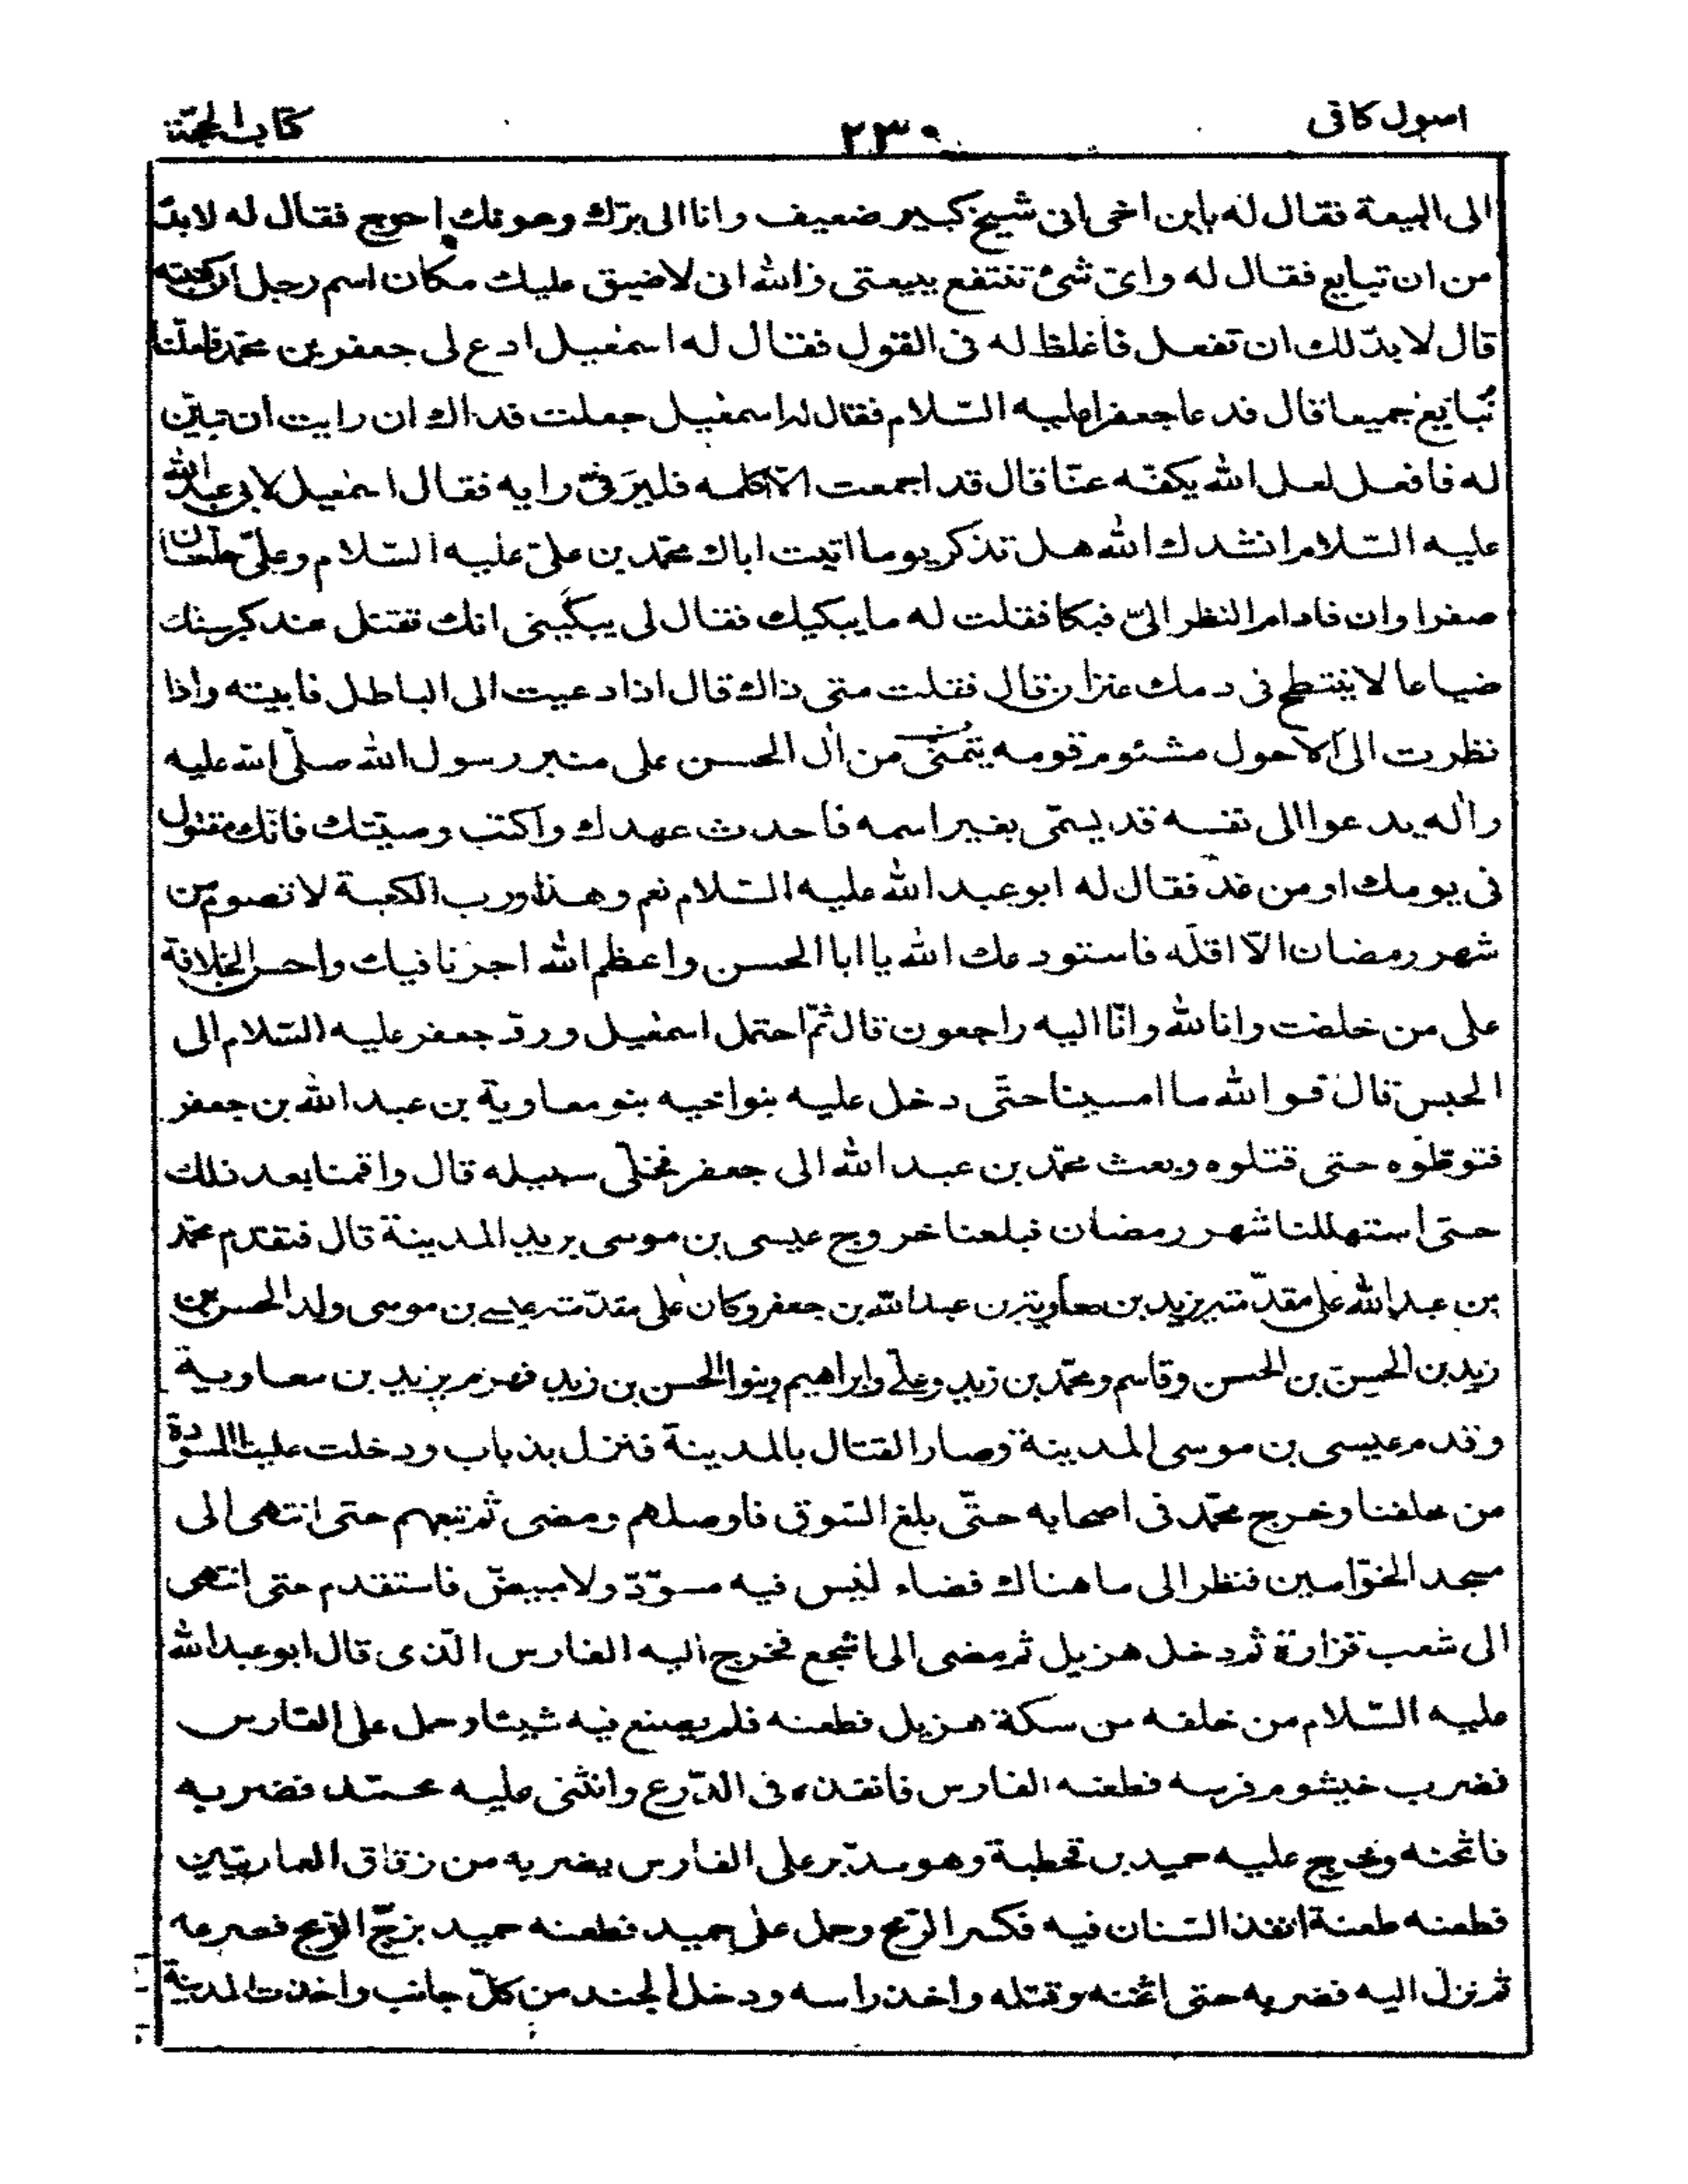 اصول كافى
٢٣٠
كتاب الحجّة
الى البيعة فقال له يابن اخى انى شيخ كبير ضعيف وانا الى برّك وعونك احوج فقال له لابدّ
من ان تبايع فقال له واىّ شئ تنتفع ببيعتى والله انى لاضيق عليك مكان اسم رجل ان كتبته
قال لابدّ لك ان تفعل فأغلظ له فى القول فقال له اسمعيل ادع لى جعفر بن محمّد فلعلّنا
نُبايع جميعا قال فدعا جعفرا عليه السّلام فقال له اسمعيل جعلت فداك ان رايت ان تبيّن
له فافعل لعل الله يكفّه عنّا قال قد اجمعت الّا اكلمه فليرَفىّ رايه فقال اسمعيل لابى عبدالله
عليه السّلام انشدك الله هل تذكر يوما اتيت اباك محمّد بن علىّ عليه السّلام وعلىّ حلّتان
صفراوان فادام النظر الىّ فبكا فقلت له ما يبكيك فقال لى يبكّينى انك تقتل عند كبر سنك
ضياعا لا ينتطح فى دمك عنزان قال فقلت متى ذاك قال اذا دعيت الى الباطل فابيته واذا
نظرت الى الاحول مشئوم قومه يتمنّى من ال الحسن على منبر رسول الله صلّى الله عليه
واٰله يدعوا الى نفسه قد يسمّى بغير اسمه فاحدث عهدك واكتب وصيّتك فانّك مقتول
فى يومك او من غد فقال له ابو عبد الله عليه السّلام نعم وهذا ورب الكعبة لا تصوم من
شهر رمضان الّا اقلّه فاستودعك الله يا ابا الحسن واعظم الله اجرنا فيك واحسن الخلافة
على من خلفت وانا لله وانّا اليه راجعون قال ثمّ احتمل اسمعيل وردّ جعفر عليه السّلام الى
الحبس قال فو الله ما امسينا حتّى دخل عليه بنو اخيه بنو معاوية بن عبد الله بن جعفر
فتوطّوه حتى قتلوه وبعث محمّد بن عبد الله الى جعفر فخلّى سبيله قال واقمنا بعد ذلك
حتى استهللنا شهر رمضان فبلعنا خروج عيسى بن موسى يريد المدينة قال فتقدم محمّد
بن عبد الله على مقدّمته يزيد بن معاوية بن عبد الله بن جعفر وكان على مقدّمته عيسى بن موسى ولد الحسن بن
زيد بن الحسن بن الحسن وقاسم ومحمّد بن زيد وعلى وابراهيم وبنوا الحسن بن زيد فهزم يزيد بن معاوية
وقدم عيسى بن موسى المدينة وصار القتال بالمدينة فنزل بذباب ودخلت علينا المسودة
من خلفنا وخرج محمّد فى اصحابه حتّى بلغ السّوق فاوصلهم ومضى ثم تبعهم حتى انتهى الى
مسجد الخوّامين فنظر الى ما هناك فضاء ليس فيه مسوّد ولا مبيض فاستقدم حتى انتهى
الى شعب فزارة ثم دخل هزيل ثم مضى الى اشجع فخرج اليه الفارس الّذى قال ابو عبد الله
عليه السّلام من خلفه من سكة هزيل فطعنه فلم يصنع فيه شيئا وحمل على الفارس
فضرب خيشوم فرسه فطعنه الفارس فانفذه فى الدّرع وانثنى عليه محمّد فضربه
فاثخنه وخرج عليه حميد بن قحطبة وهو مدبر على الفارس يضربه من زقاق العماريّين
فطعنه طعنة انفذ السّنان فيه فكسر الرّمح وحمل على حميد فطعنه حميد بزجّ الرّمح فصرعه
ثم نزل اليه فضربه حتى اثخنه وقتله واخذ راسه ودخل الجند من كلّ جانب واخذت المدينة